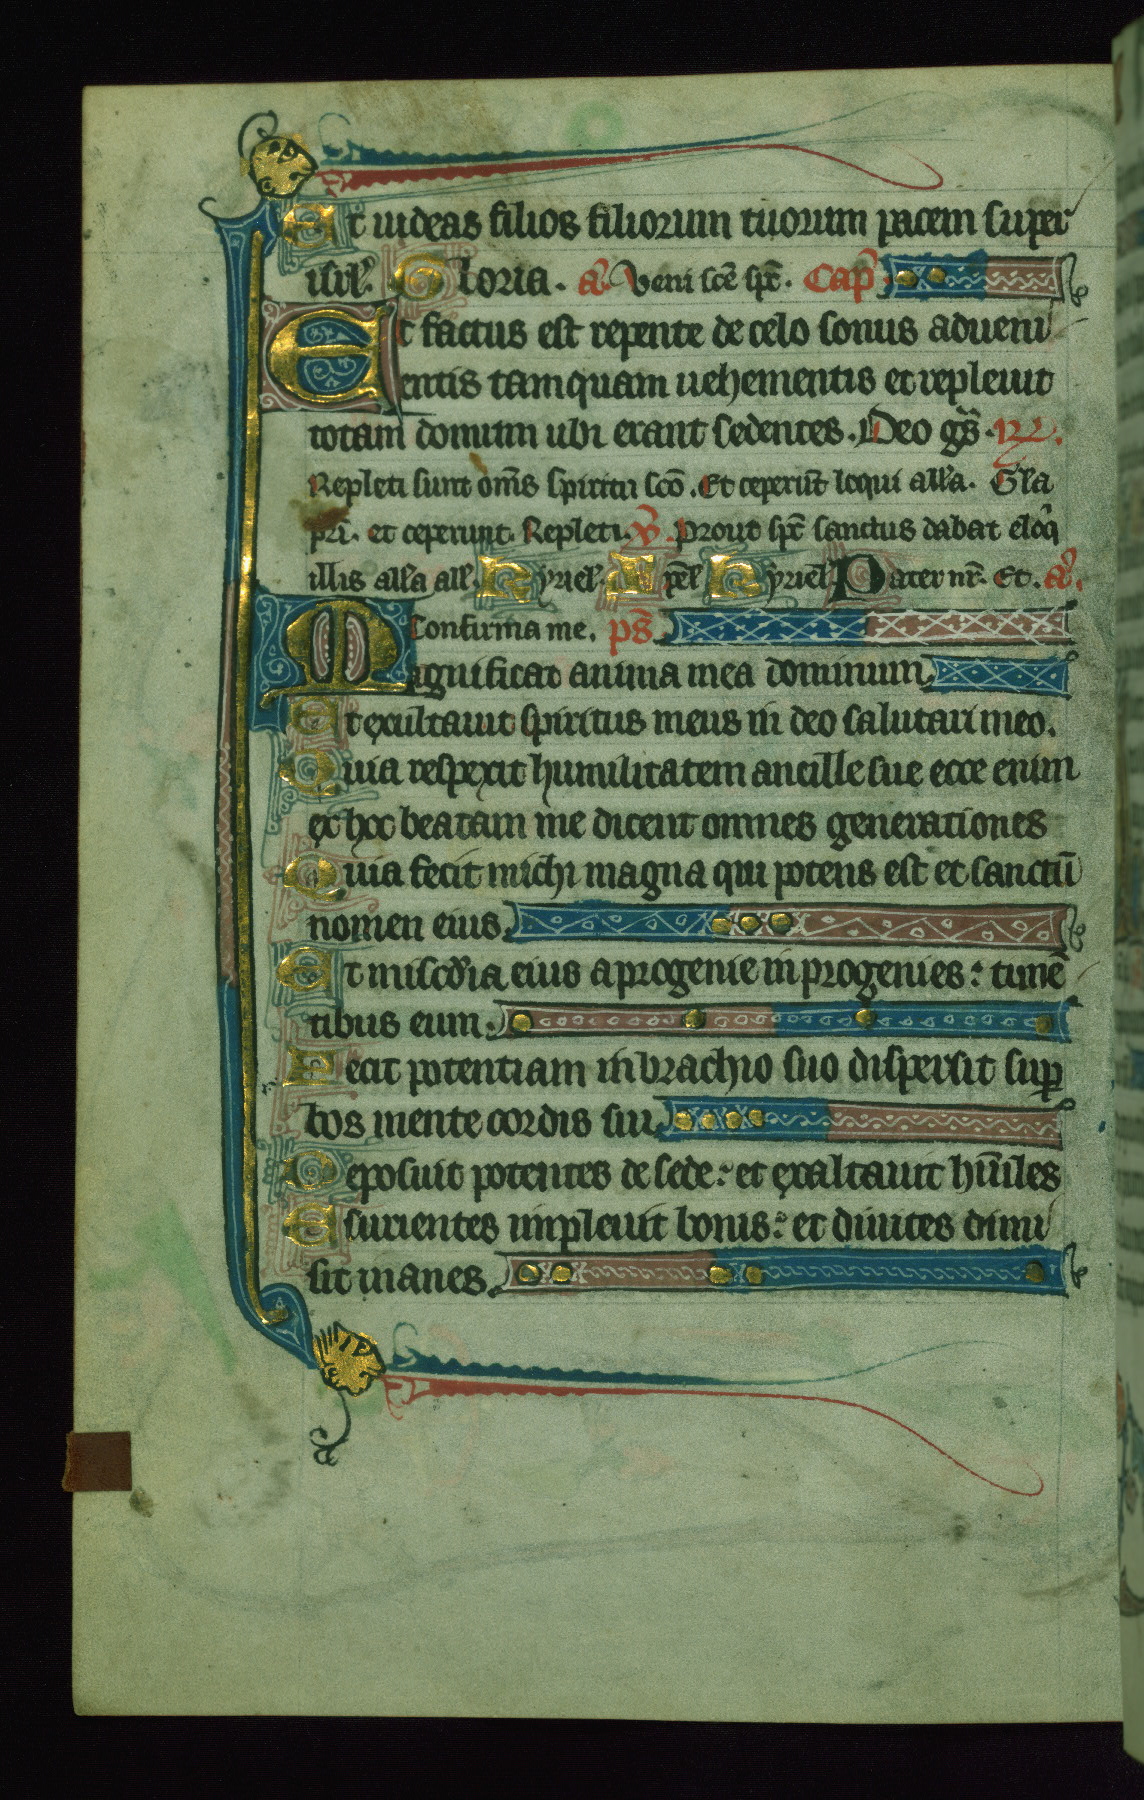 Et uideas filios filiorum tuorum pacem super
isrl̃. Gloria. añ Veni sc̃e sp̃c. Cap̃
Et factus est repente de celo sonus adueni
entis tamquam uehementis et repleuit
totam domum ubi erant sedentes. Deo gr̃s. R̃.
Repleti sunt om̃s spiritu sc̃o. Et ceperũt loqui all̃a. Gl̃a
pr̃i. et ceperunt. Repleti. Ṽ. Prout sp̃c sanctus dabat eloq̃
illis all̃a all̃. Kyriel̃. Xp̃el̃ Kyriel̃ Pater nr̃. Et. añ.
Confirma me. ps̃
Magnificat anima mea dominum.
Et exultauit spiritus meus in deo salutari meo.
Quia respexit humilitatem ancille sue ecce enim
ex hoc beatam me dicent omnes generationes
Quia fecit michi magna qui potens est et sanctũ
nomen eius.
Et misc̃dia eius a progenie in progenies: timẽ
tibus eum.
Fecit potentiam in brachio suo dispersit suꝑ
bos mente cordis sui.
Deposuit potentes de sede: et exaltauit hũiles
Esurientes impleuit bonis: et diuites dimi
sit inanes.